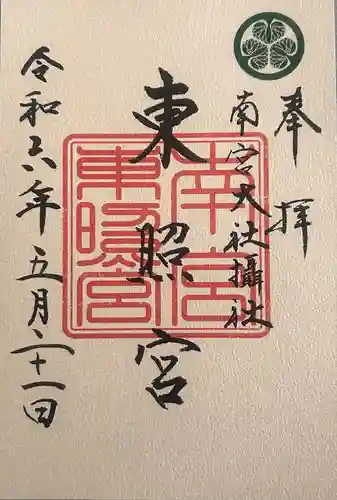 奉拝
南宮大社攝社
東照宮
令和六年五月二十一日
南宮
東照宮